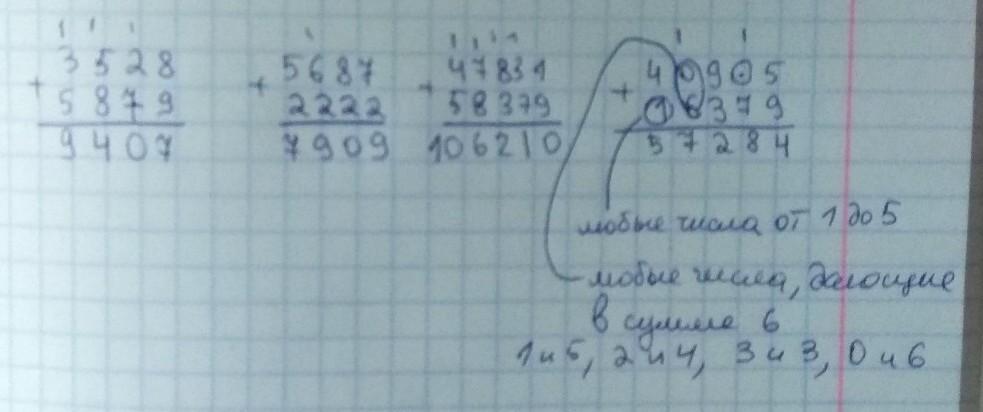 1 1 1 1 1 1 1 1 1 1
3528 5687 47831 40905
+ + + +
5879 2222 58379 16379
9407 7909 106210 57284
любые числа от 1 до 5
любые числа, дающие
в сумме 6
1 и 5, 2 и 4, 3 и 3, 0 и 6